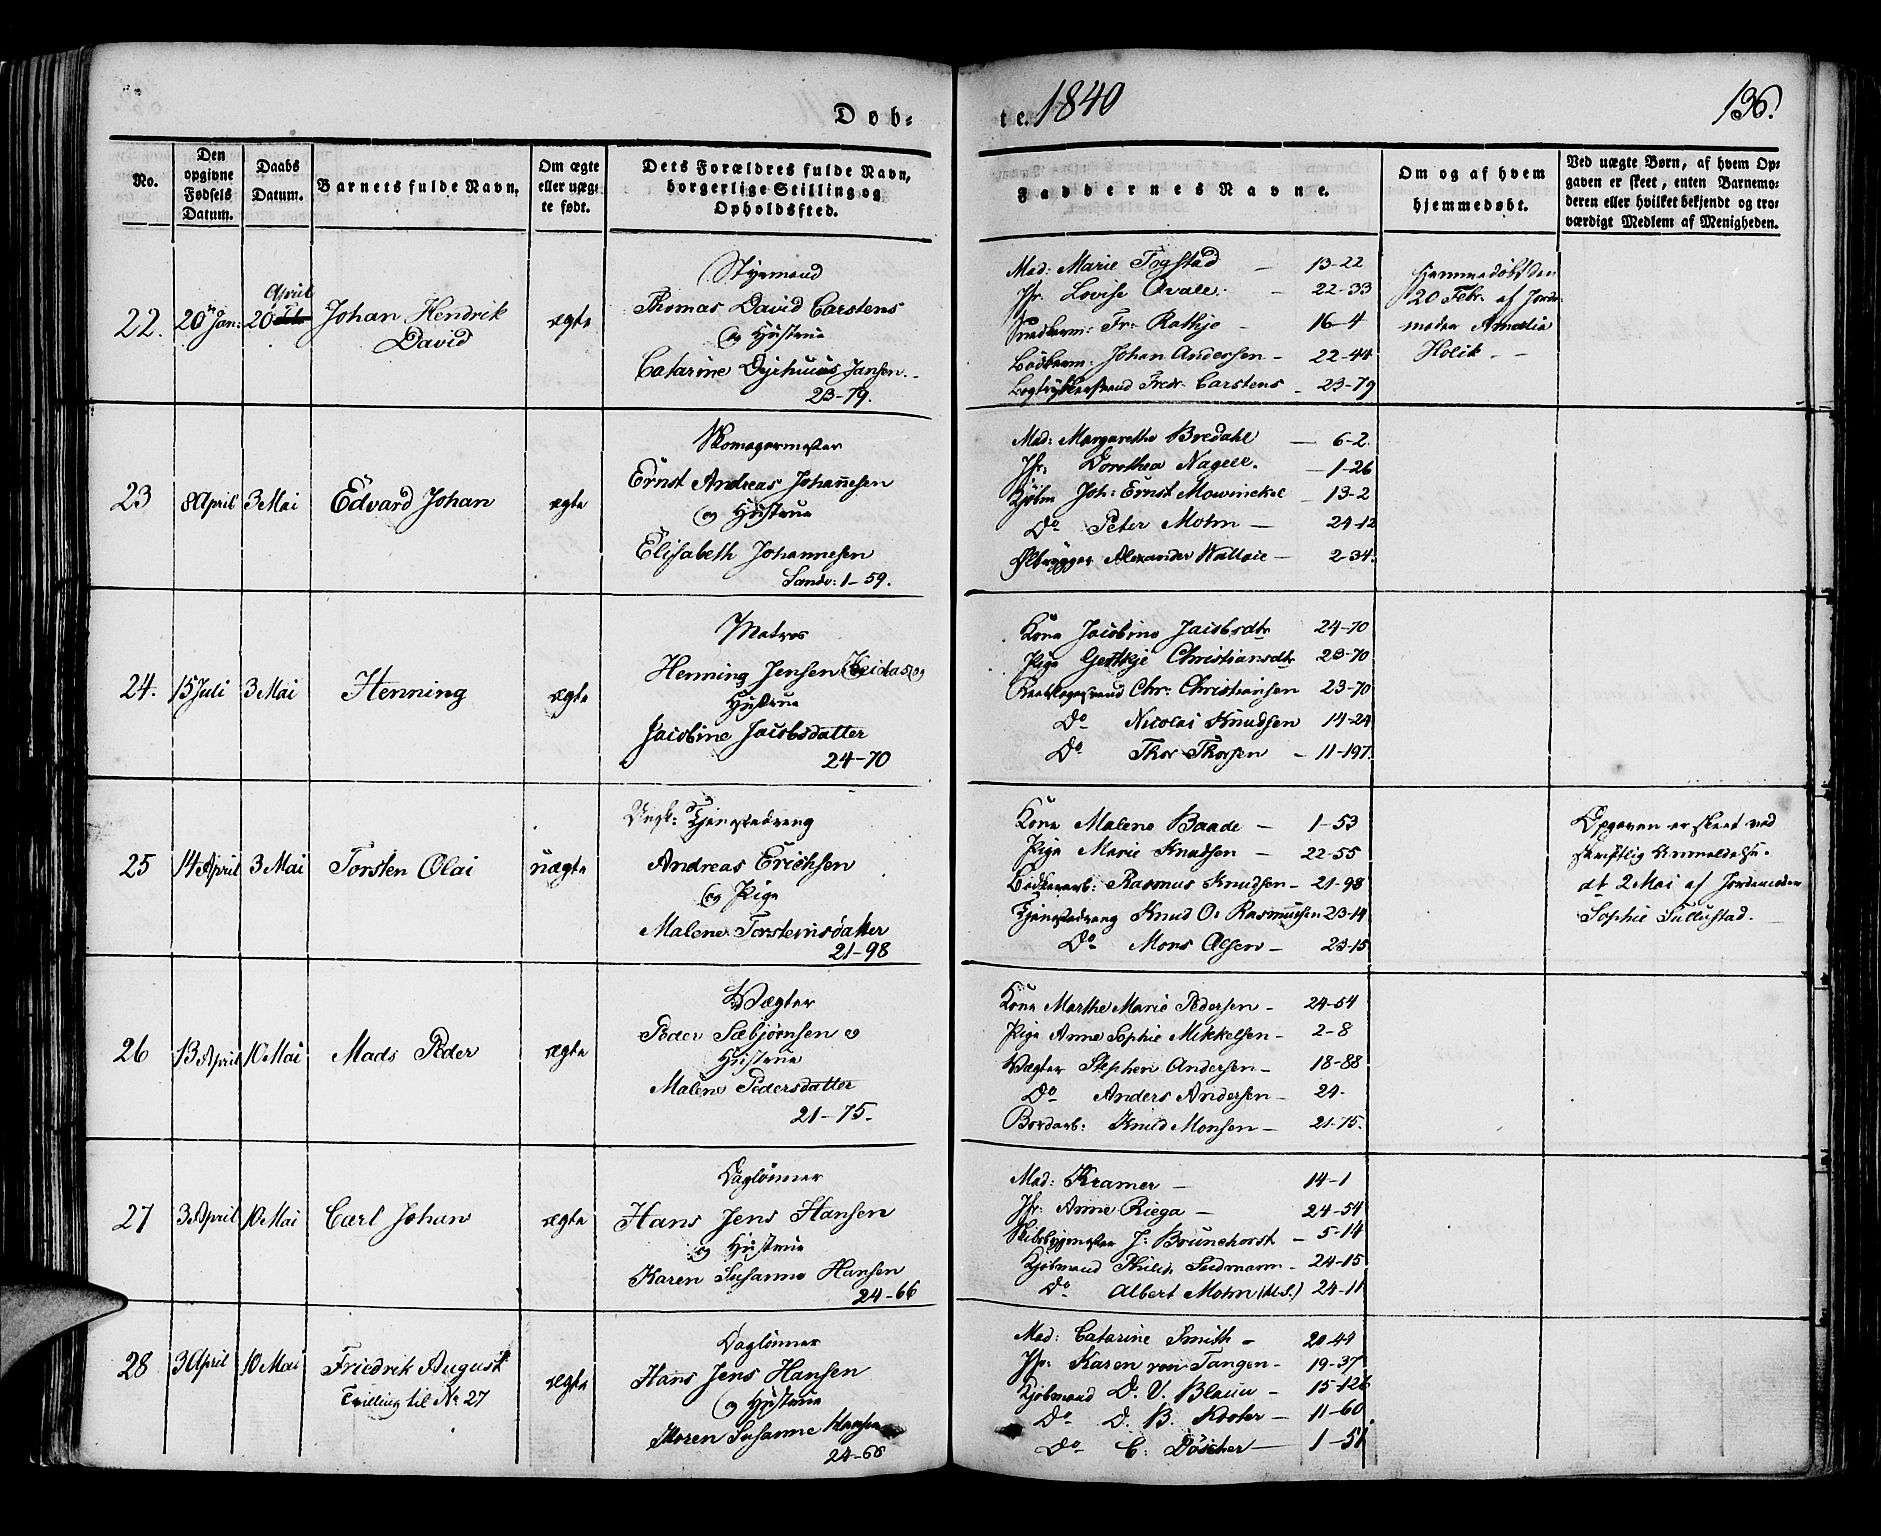 Døb-
te. 1840
136.
No.
Den opgivne Fødsels Datum.
Daabs Datum.
Barnets fulde Navn.
Om ægte eller uæg- te født.
Dets Forældres fulde Navn, borgerlige Stilling og Opholdssted.
Faddernes Navne.
Om og af hvem hjemmedøbt.
Ved uægte Børn, af hvem Op- gaven er skeet, enten Barnemo- deren eller hvilket bekjendt og tro- værdigt Medlem af Menigheden.
22. 20 Jan: 20 April
Johan Hendrik
David
ægte
Styrmand
Thomas David Carstens
og Hustrue
Catarine Jansen.
23-79.
Mad: Marie Fogstad - 13-22
Jfr. Lovise Qvale. - 22-33
Snedkerm: Fr: Rathje - 16-4
Bødkerm: Johan Andersen - 22-44
Bogtrykkersvend Fredr. Carstens - 23-79
Hjemmedøbt den
20 Febr. af Jorde-
moder Amalia
Holik -
23 8 April 3 Mai
Edvard Johan
ægte
Skomagermester
Ernst Andreas Johannesen
og Hustrue
Elisabeth Johannesen
Sandv: 1-59.
Mad: Margarethe Bredahl - 6-2.
Jfr: Dorothea Nagell. - 1-26
Kjøbm Joh: Ernst Mowinckel - 13-2
Do Peter Mohn - 24-12
Ølbrygger Alexander Wallace - 2-34.
24. 15 Juli 3 Mai
Henning
ægte
Matros
Henning Jensen og
Hustrue
Jacobine Jacobsdatter
24-70
Kone Jacobine Jacobsdtr 24-70
Pige Christiansdtr 23-70
Chr: Christiansen 23-70
Do Nicolai Knudsen 14-24
Do Thor Thorsen - 11-197.
25 14 April 3 Mai
Torsten Olai
uægte
Ungk: Tjenestedreng
Andreas Erichsen
og Pige
Malene Torsteinsdatter
21-98
Kone Malene Baade - 1-53
Pige Marie Knudsen - 22-55
Bødkerarb: Rasmus Knudsen - 21-98
Tjenestedreng Knud O. Rasmussen 23-14
Do Mons Olsen - 23-15
Opgaven er skeet ved
skriftlig Anmeldelse.
dt 2 Mai af Jordemoder
Sophie Tullustad.
26 13 April 10 Mai
Mads Peder
ægte
Vægter
Peder Sæbjørnsen og
Hustrue
Malene Pedersdatter
21-75.
Kone Marthe Marie Pedersen - 24-54
Pige Anne Sophie Mikkelsen - 2-8
Vægter Stephen Andersen - 18-88
Do Anders Andersen - 24.
Bordarb: Knud Monsen - 21-75.
27 3 April 10 Mai
Carl Johan
ægte
Daglønner
Hans Jens Hansen
og Hustrue
Karen Susanne Hansen
24-66
Mad: Kramer - 14-1
Jfr: Anne Riega - 24-54
Skibsbygmester J: Brunchorst - 5-14
Kjøbmand Philip Sedmann - 24-15
Do Albert Mohn (A.S.) 24-11
28 3 April 10 Mai
Friedrik August
Tvilling til No 27
ægte
Daglønner
Hans Jens Hansen
og Hustrue
Karen Susanne Hansen
24-66
Mad: Catarine Smith - 20-49
Jfr: Karen von Tangen - 19-37
Kjøbmand D. V. Blauw - 15-126
Do D. B. Kooter - 11-60
Do C: Döscher - 1-51